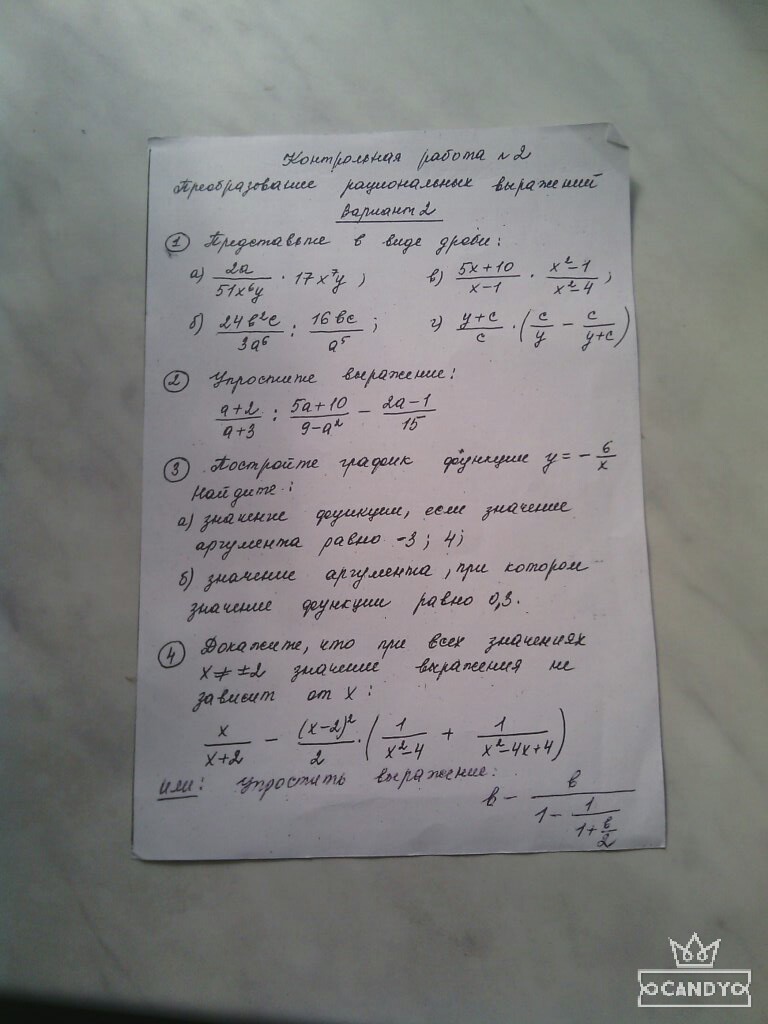 Контрольная работа №2
Преобразование рациональных выражений
Вариант 2
① Представьте в виде дроби:
а) 2a/(51x⁶y) · 17x⁷y; в) (5x+10)/(x-1) · (x²-1)/(x²-4);
б) 24b²c/(3a⁶) : 16bc/a⁵; г) (y+c)/c · (c/y - c/(y+c))
② Упростите выражение:
(a+2)/(a+3) : (5a+10)/(9-a²) - (2a-1)/15
③ Постройте график функции y = -6/x
Найдите:
а) значение функции, если значение
аргумента равно -3; 4;
б) значение аргумента, при котором
значение функции равно 0,3.
④ Докажите, что при всех значениях
x ≠ ±2 значение выражения не
зависит от x:
x/(x+2) - (x-2)²/2 · (1/(x²-4) + 1/(x²-4x+4))
или: Упростить выражение:
b - b/(1 - 1/(1+b/2))
OCANDYO